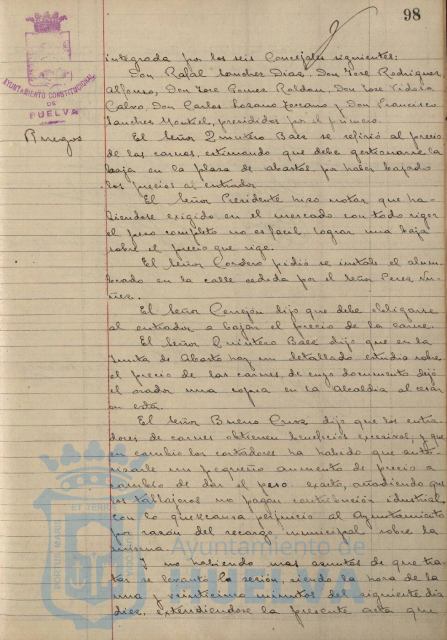 98
AYUNTAMIENTO CONSTITUCIONAL
DE
HUELVA
Ruegos
integrada por los seis Concejales siguientes:
Don Rafael Sanchez Diaz, Don José Rodriguez
Alfonso, Don José Gomez Roldan, Don José Tidoia
Calvo, Don Carlos Lozano y Don Francisco
Sanchez Montiel, presididos por el primero.
El Señor Quintero Baez se refirió al precio
de las carnes, estimando que debe gestionarse la
baja en la plaza de abastos por haber bajado
los precios al entrador
El Señor Presidente hizo notar que ha-
biendose exigido en el mercado con todo rigor
el peso completo no es facil lograr una baja
sobre el precio que rige.
El Señor Cordero pidió se instale el alum-
brado en la calle cedida por el Señor Perez Nu-
ñez.
El Señor Cerejón dijo que debe obligarse
al entrador a bajar el precio de la carne.
El Señor Quintero Baez dijo que en la
Junta de Abastos hay un detallado estudio sobre
el precio de las carnes, de cuyo documento dejó
el orador una copia en la Alcaldia al cesar
en esta.
El Señor Bueno Cruz dijo que los entra-
dores de carnes obtienen beneficios excesivos, y que
en cambio los cortadores ha habido que auto-
rizarle un pequeño aumento de precio a
cambio de dar el peso exacto, añadiendo que
los tablajeros no pagan contribución industrial
con lo que causa perjuicio al Ayuntamiento
por razón del recargo municipal sobre la
misma.
Y no habiendo mas asuntos de que tra-
tar se levantó la sesión, siendo la hora de la
una y veinticinco minutos del siguiente dia
diez, extendiendose la presente acta que
Ayuntamiento de
HUELVA